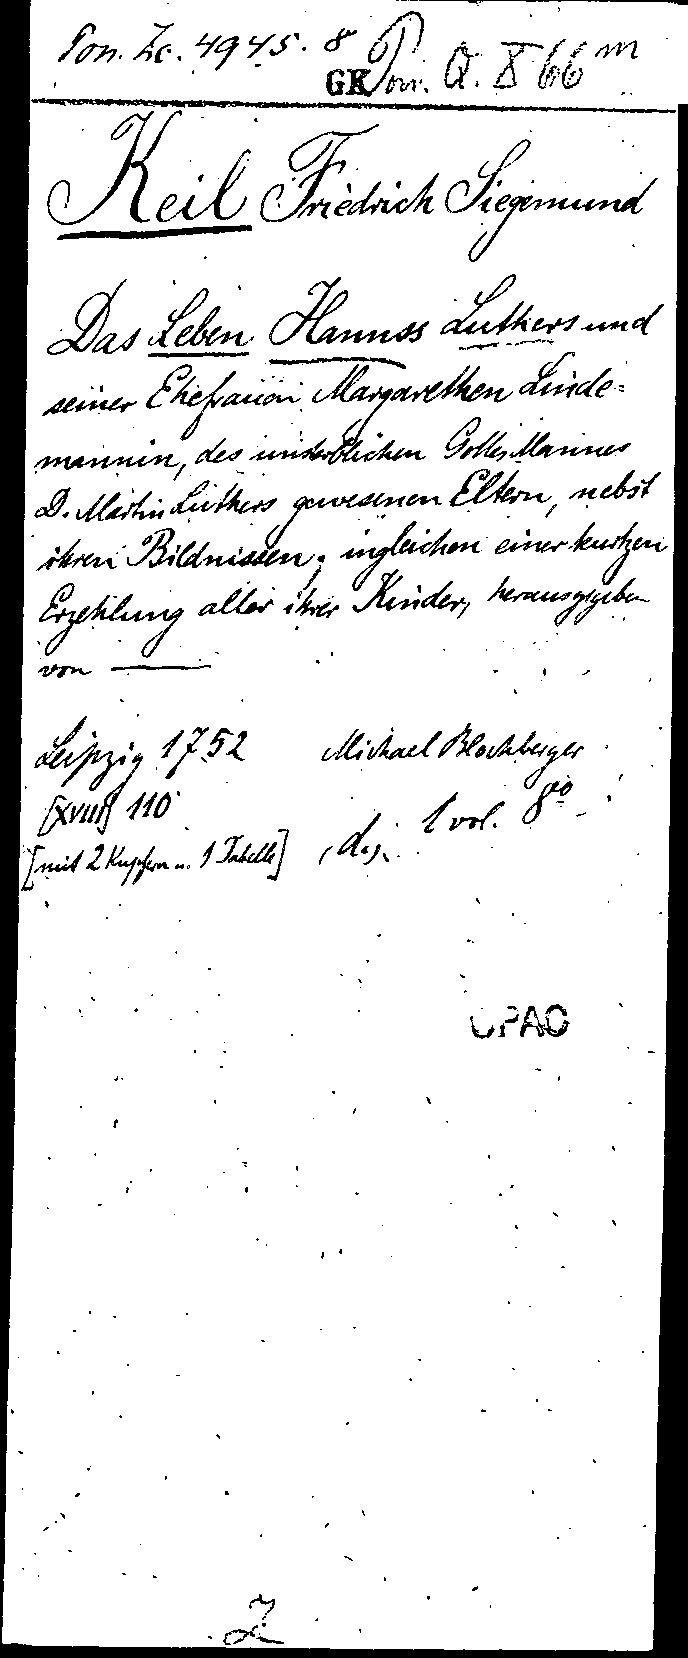 Pon. Zc. 4945. 8
GK Pon. Q. X 66 m
Keil Friedrich Siegemund
Das Leben Hannss Luthers und
seiner Ehefrauen Margarethen Linde-
mannin, des unsterblichen GottesMannes
D. Martin Luthers gewesenen Eltern, nebst
ihren Bildnissen, ingleichen einer kurtzen
Erzehlung aller ihrer Kinder, herausgegeben
von ———
Leipzig 1752 Michael Blochberger
[XVIII] 110 1 vol. 8vo
[mit 2 Kupfern u. 1 Tabelle]
UPAO